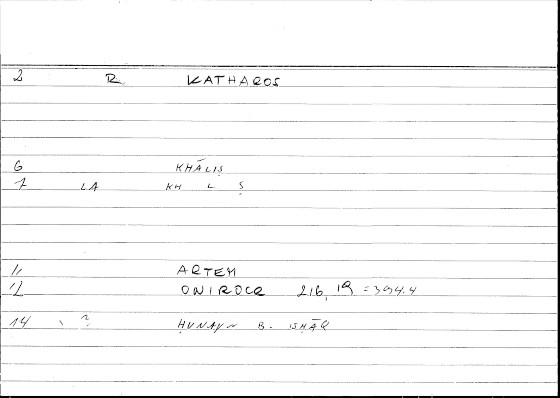 2 R KATHAROS
6 KHĀLIṢ
7 LA KH L Ṣ
11 ARTEM
12 ONIROCR 216, 19 = 394.4
14 ? ḤUNAYN B. ISḤĀQ